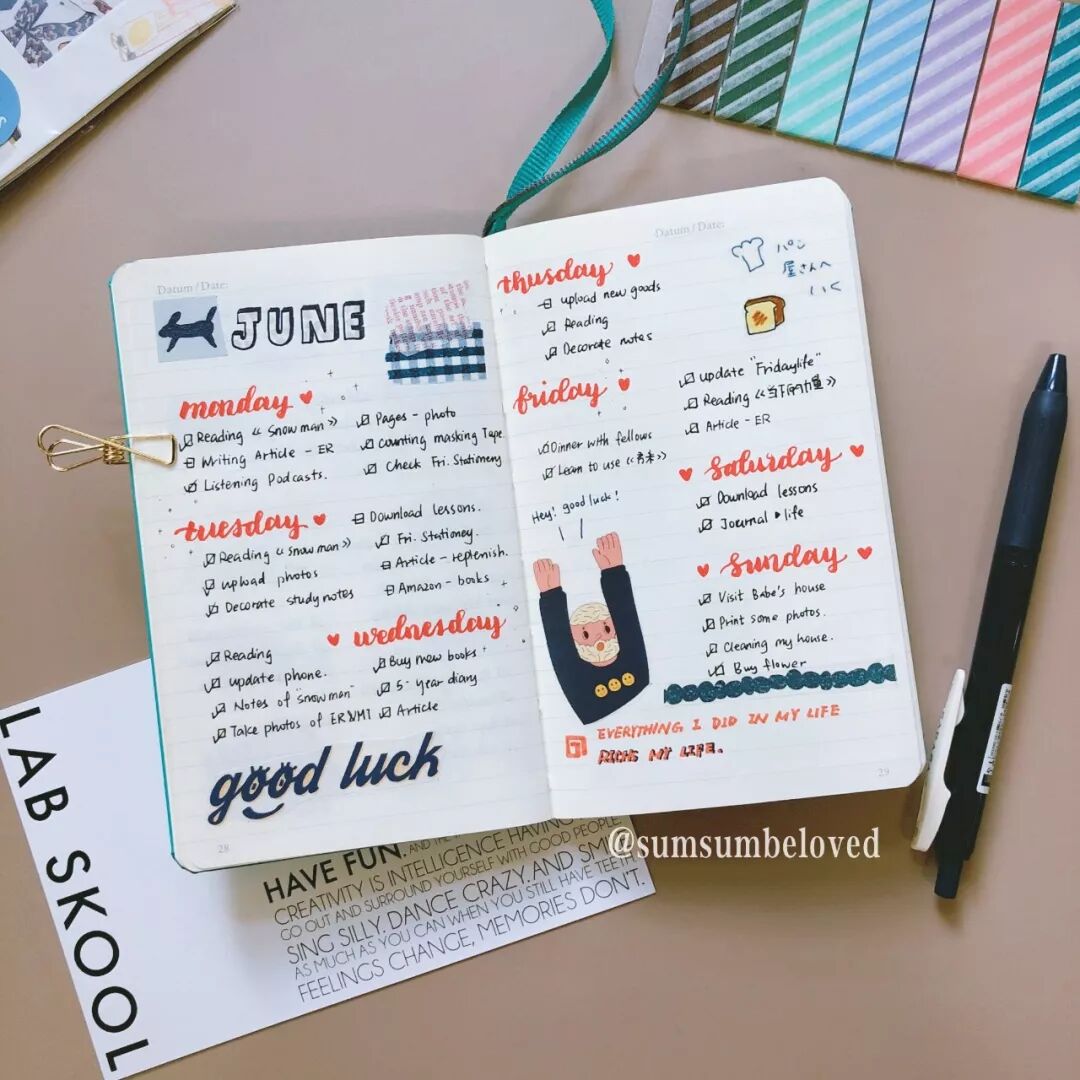 Datum / Date:
JUNE
monday
Reading 《Snow man》
Writing Article - ER
Listening Podcasts.
Pages - photo
Counting masking Tape.
Check Fri. Stationery
tuesday
Reading 《Snow man》
upload photos
Decorate study notes
Download lessons.
Fri. Stationey.
Article - replenish.
Amazon - books
wednesday
Reading
update phone.
Notes of "snow man"
Take photos of ER&M1
Buy new books
5-year diary
Article
good luck
28
Datum / Date:
thusday
upload new goods
Reading
Decorate notes
パン
屋さんへ
いく
friday
Dinner with fellows
Learn to use
update "Fridaylife"
Reading 《当下的力量》
Article - ER
Hey! good luck!
saturday
Download lessons
Journal ▸ life
sunday
Visit Babe's house
Print some photos.
Cleaning my house.
Buy flower
EVERYTHING I DID IN MY LIFE
RICHS MY LIFE.
29
@sumsumbeloved
LAB SKOOL
HAVE FUN.
CREATIVITY IS INTELLIGENCE HAVING
GO OUT AND SURROUND YOURSELF WITH GOOD PEOPLE
SING SILLY. DANCE CRAZY. AND SMILE
AS MUCH AS YOU CAN WHEN YOU STILL HAVE TEETH.
FEELINGS CHANGE, MEMORIES DON'T.